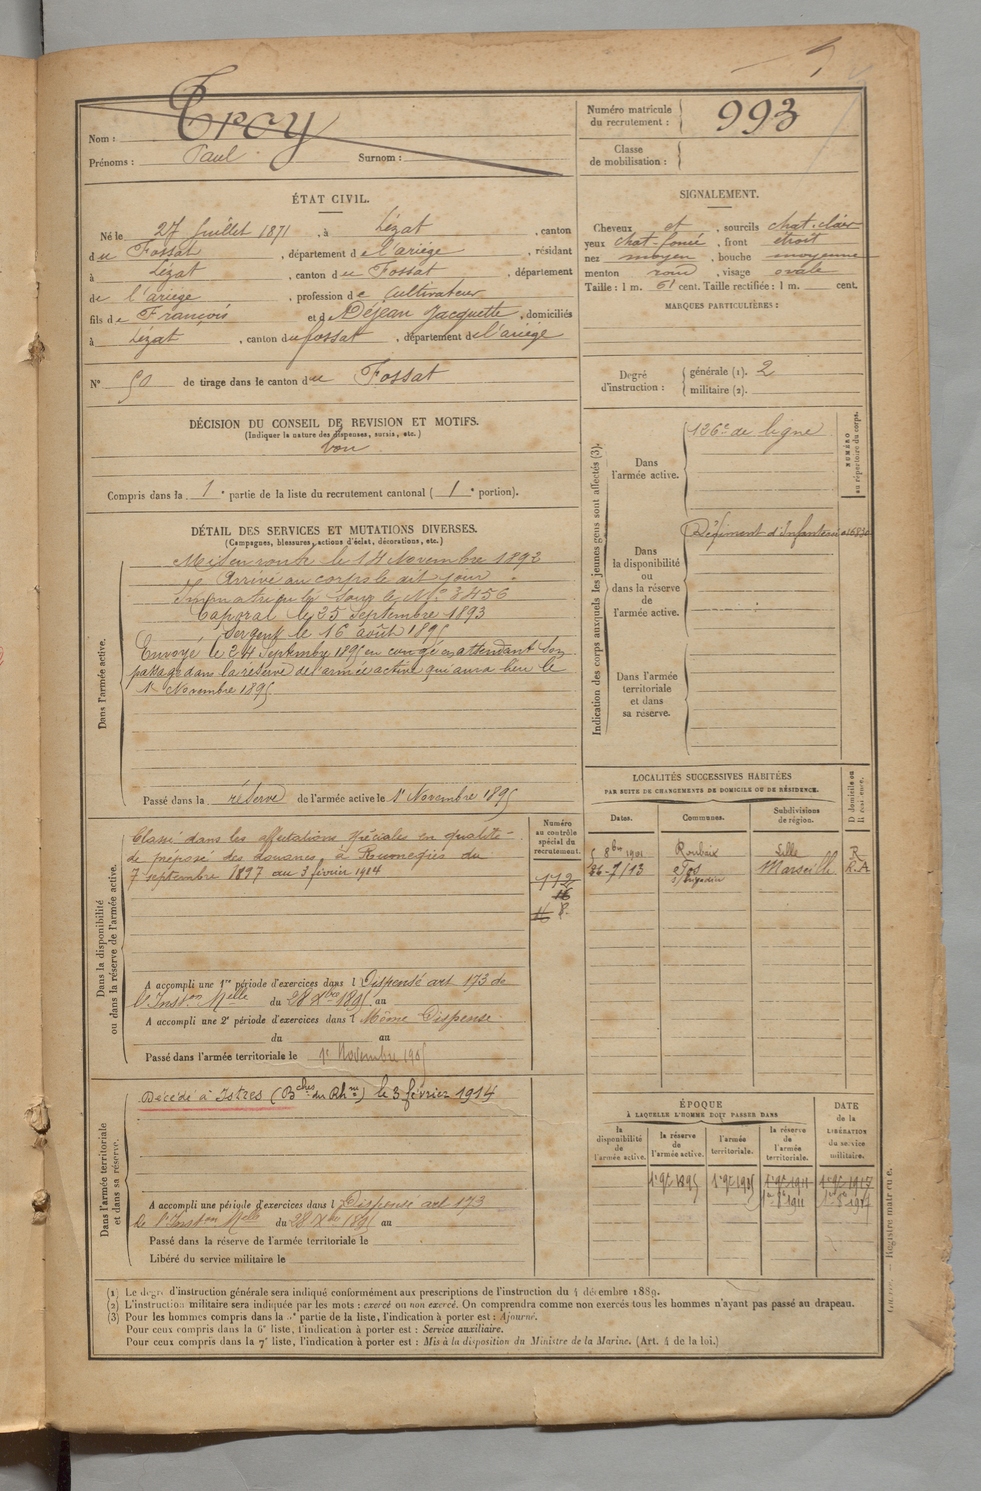 Nom : Troy
Prénoms : Paul Surnom :
Numéro matricule du recrutement : 993
Classe de mobilisation :
ÉTAT CIVIL.
Né le 27 Juillet 1871, à Lézat, canton
du Fossat, département de l'ariège, résidant
à Lezat, canton du Fossat, département
de l'ariège, profession de cultivateur
fils de François et de Déjean Jacquette, domiciliés
à Lézat, canton du fossat, département de l'ariège
N° 50 de tirage dans le canton du Fossat
DÉCISION DU CONSEIL DE REVISION ET MOTIFS.
(Indiquer la nature des dispenses, sursis, etc.)
bon
Compris dans la 1e partie de la liste du recrutement cantonal (1e portion).
DÉTAIL DES SERVICES ET MUTATIONS DIVERSES.
(Campagnes, blessures, actions d'éclat, décorations, etc.)
Dans l'armée active.
Mis en route le 14 Novembre 1892
Arrivé au corps le dit jour
Immatriculé sous le N° 3456
Caporal le 25 Septembre 1893
Sergent le 16 août 1895
Envoyé le 24 Septembre 1895 en congé en attendant son
passage dans la réserve de l'armée active qui aura lieu le
1er Novembre 1895
Passé dans la réserve de l'armée active le 1er Novembre 1895
Dans la disponibilité
ou dans la réserve de l'armée active.
Classé dans les affectations spéciales en qualité
de préposé des douanes, à Rumegies du
7 septembre 1897 au 3 février 1914
A accompli une 1re période d'exercices dans l Dispensé art 173 de
l'Inston Melle du 28 Xbre 1895 au
A accompli une 2e période d'exercices dans l Même Dispense
du au
Passé dans l'armée territoriale le 1er Novembre 1905
Numéro
au contrôle
spécial du
recrutement.
112
16
16 8.
Dans l'armée territoriale
et dans sa réserve.
Décédé à Istres (Bches du Rhne) le 3 février 1914
A accompli une période d'exercices dans l Dispense art 173
de l'Inston Melle du 28 Xbre 1895 au
Passé dans la réserve de l'armée territoriale le
Libéré du service militaire le
SIGNALEMENT.
Cheveux et, sourcils chat-clair
yeux chat-foncé, front étroit
nez moyen, bouche moyenne
menton rond, visage ovale
Taille : 1 m. 61 cent. Taille rectifiée : 1 m. cent.
MARQUES PARTICULIÈRES :
Degré d'instruction : générale (1). 2
militaire (2).
Indication des corps auxquels les jeunes gens sont affectés (3).
NUMÉRO
au répertoire du corps.
Dans
l'armée active.
126e de ligne
Dans
la disponibilité
ou
dans la réserve
de
l'armée active.
Régiment d'Infanterie
Dans l'armée
territoriale
et dans
sa réserve.
LOCALITÉS SUCCESSIVES HABITÉES
PAR SUITE DE CHANGEMENTS DE DOMICILE OU DE RÉSIDENCE.
Dates. Communes. Subdivisions de région. D domicile ou R résidence.
5 8bre 1901 Roubaix Lille R
26-7/13 Fos Marseille R.A
s/brigadier
ÉPOQUE
À LAQUELLE L'HOMME DOIT PASSER DANS
DATE
de la
LIBÉRATION
du service
militaire.
la disponibilité de l'armée active.
la réserve de l'armée active.
l'armée territoriale.
la réserve de l'armée territoriale.
1er 9bre 1895 1er 9bre 1905 1er 9bre 1911 1er 9bre 1917
(1) Le degré d'instruction générale sera indiqué conformément aux prescriptions de l'instruction du 4 décembre 1889.
(2) L'instruction militaire sera indiquée par les mots : exercé ou non exercé. On comprendra comme non exercés tous les hommes n'ayant pas passé au drapeau.
(3) Pour les hommes compris dans la 5e partie de la liste, l'indication à porter est : Ajourné.
Pour ceux compris dans la 6e liste, l'indication à porter est : Service auxiliaire.
Pour ceux compris dans la 7e liste, l'indication à porter est : Mis à la disposition du Ministre de la Marine. (Art. 4 de la loi.)
Registre matricule.